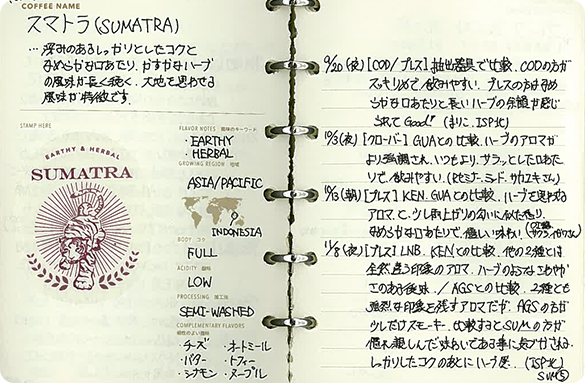 COFFEE NAME
スマトラ(SUMATRA)
…深みのあるしっかりとしたコクと
なめらかな口あたり、かすかなハーブ
の風味が長く続く、大地を思わせる
風味が特徴です。
STAMP HERE
EARTHY & HERBAL
SUMATRA
FLAVOR NOTES 風味のキーワード
・EARTHY
・HERBAL
GROWING REGION 地域
ASIA/PACIFIC
INDONESIA
BODY コク
FULL
ACIDITY 酸味
LOW
PROCESSING 加工法
SEMI-WASHED
COMPLEMENTARY FLAVORS
相性のよい風味
・チーズ ・オートミール
・バター ・トフィー
・シナモン ・メープル
9/20(夜)[COD/プレス]抽出器具で比較。CODの方が
スッキリめで、飲みやすい。プレスの方はなめ
らかな口あたりと長いハーブの余韻が感じ
られてGood! (まりこ、ISP北)
10/3(夜)[クローバー]GUAとの比較。ハーブのアロマが
より強調され、いつもより、サラッとした口あた
りで、飲みやすい。
10/13(朝)[プレス]KEN、GUAとの比較。ハーブを思わせる
アロマ。と、少し雨上がりの匂いに似た香り。
なめらかな口あたりで、優しい味わい
11/8(夜)[プレス]LNB、KENとの比較。他の2種とは
全然違う印象のアロマ。ハーブの
のある後味。/AGSとの比較。2種とも
強烈な印象を残すアロマだが、AGSの方が
少しだけスモーキー。比較するとSUMの方が
慣れ親しんだ味わいである事に気づかされる。
しっかりしたコクのあとにハーブ感。(ISP北)
SUM⑤